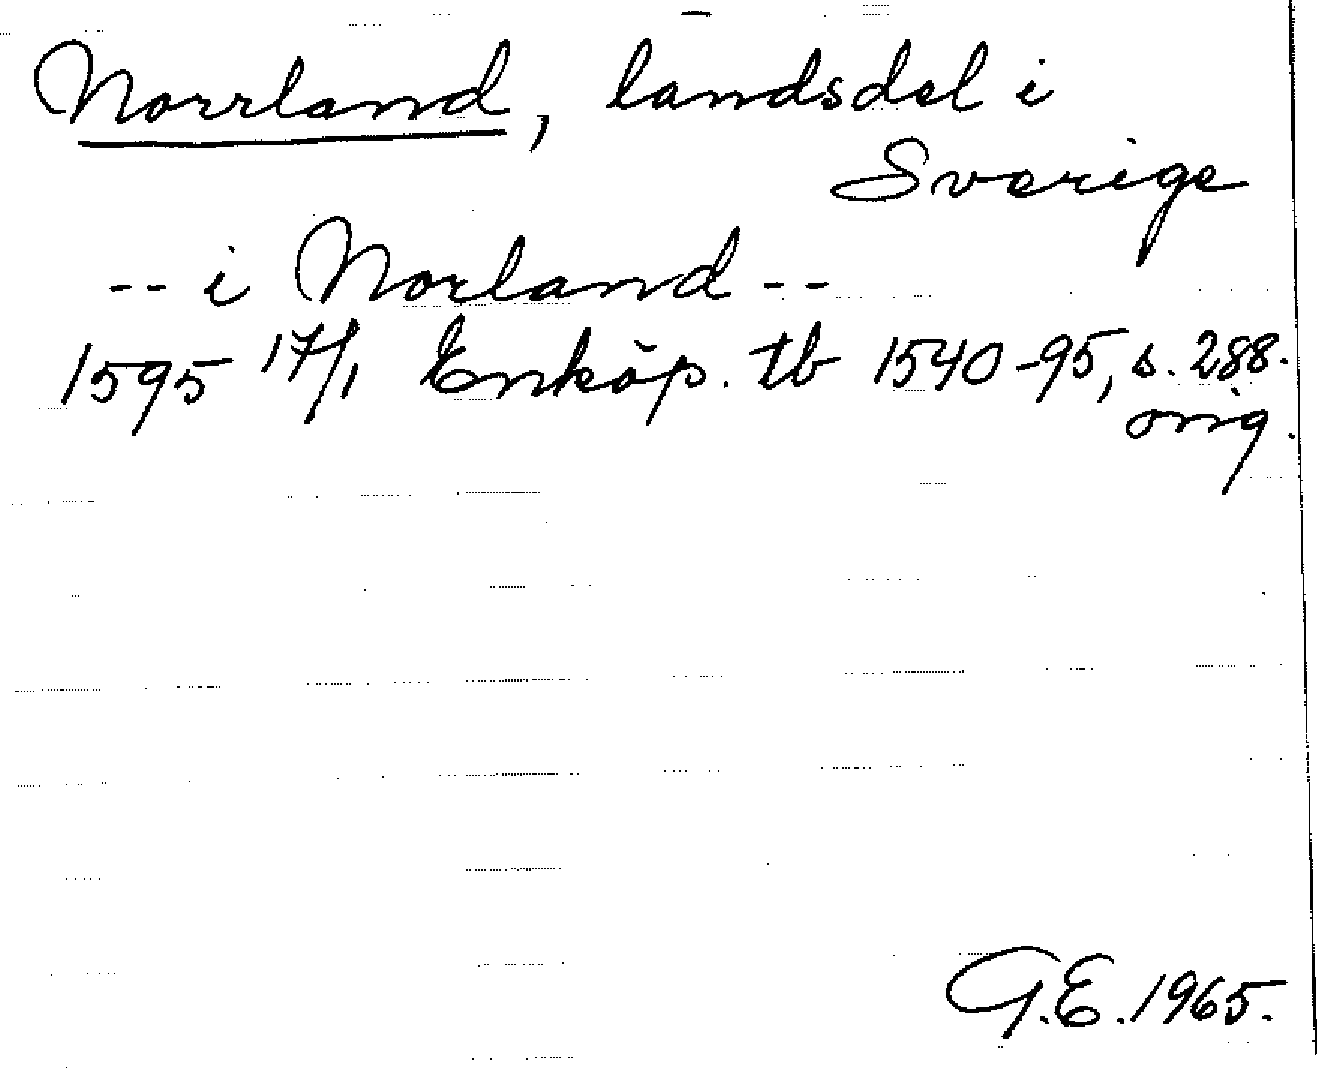 Norrland, landsdel i
Sverige
-- i Norland --
1595 17/1 Enköp. tb 1540-95, s. 288.
orig.
G.E. 1965.